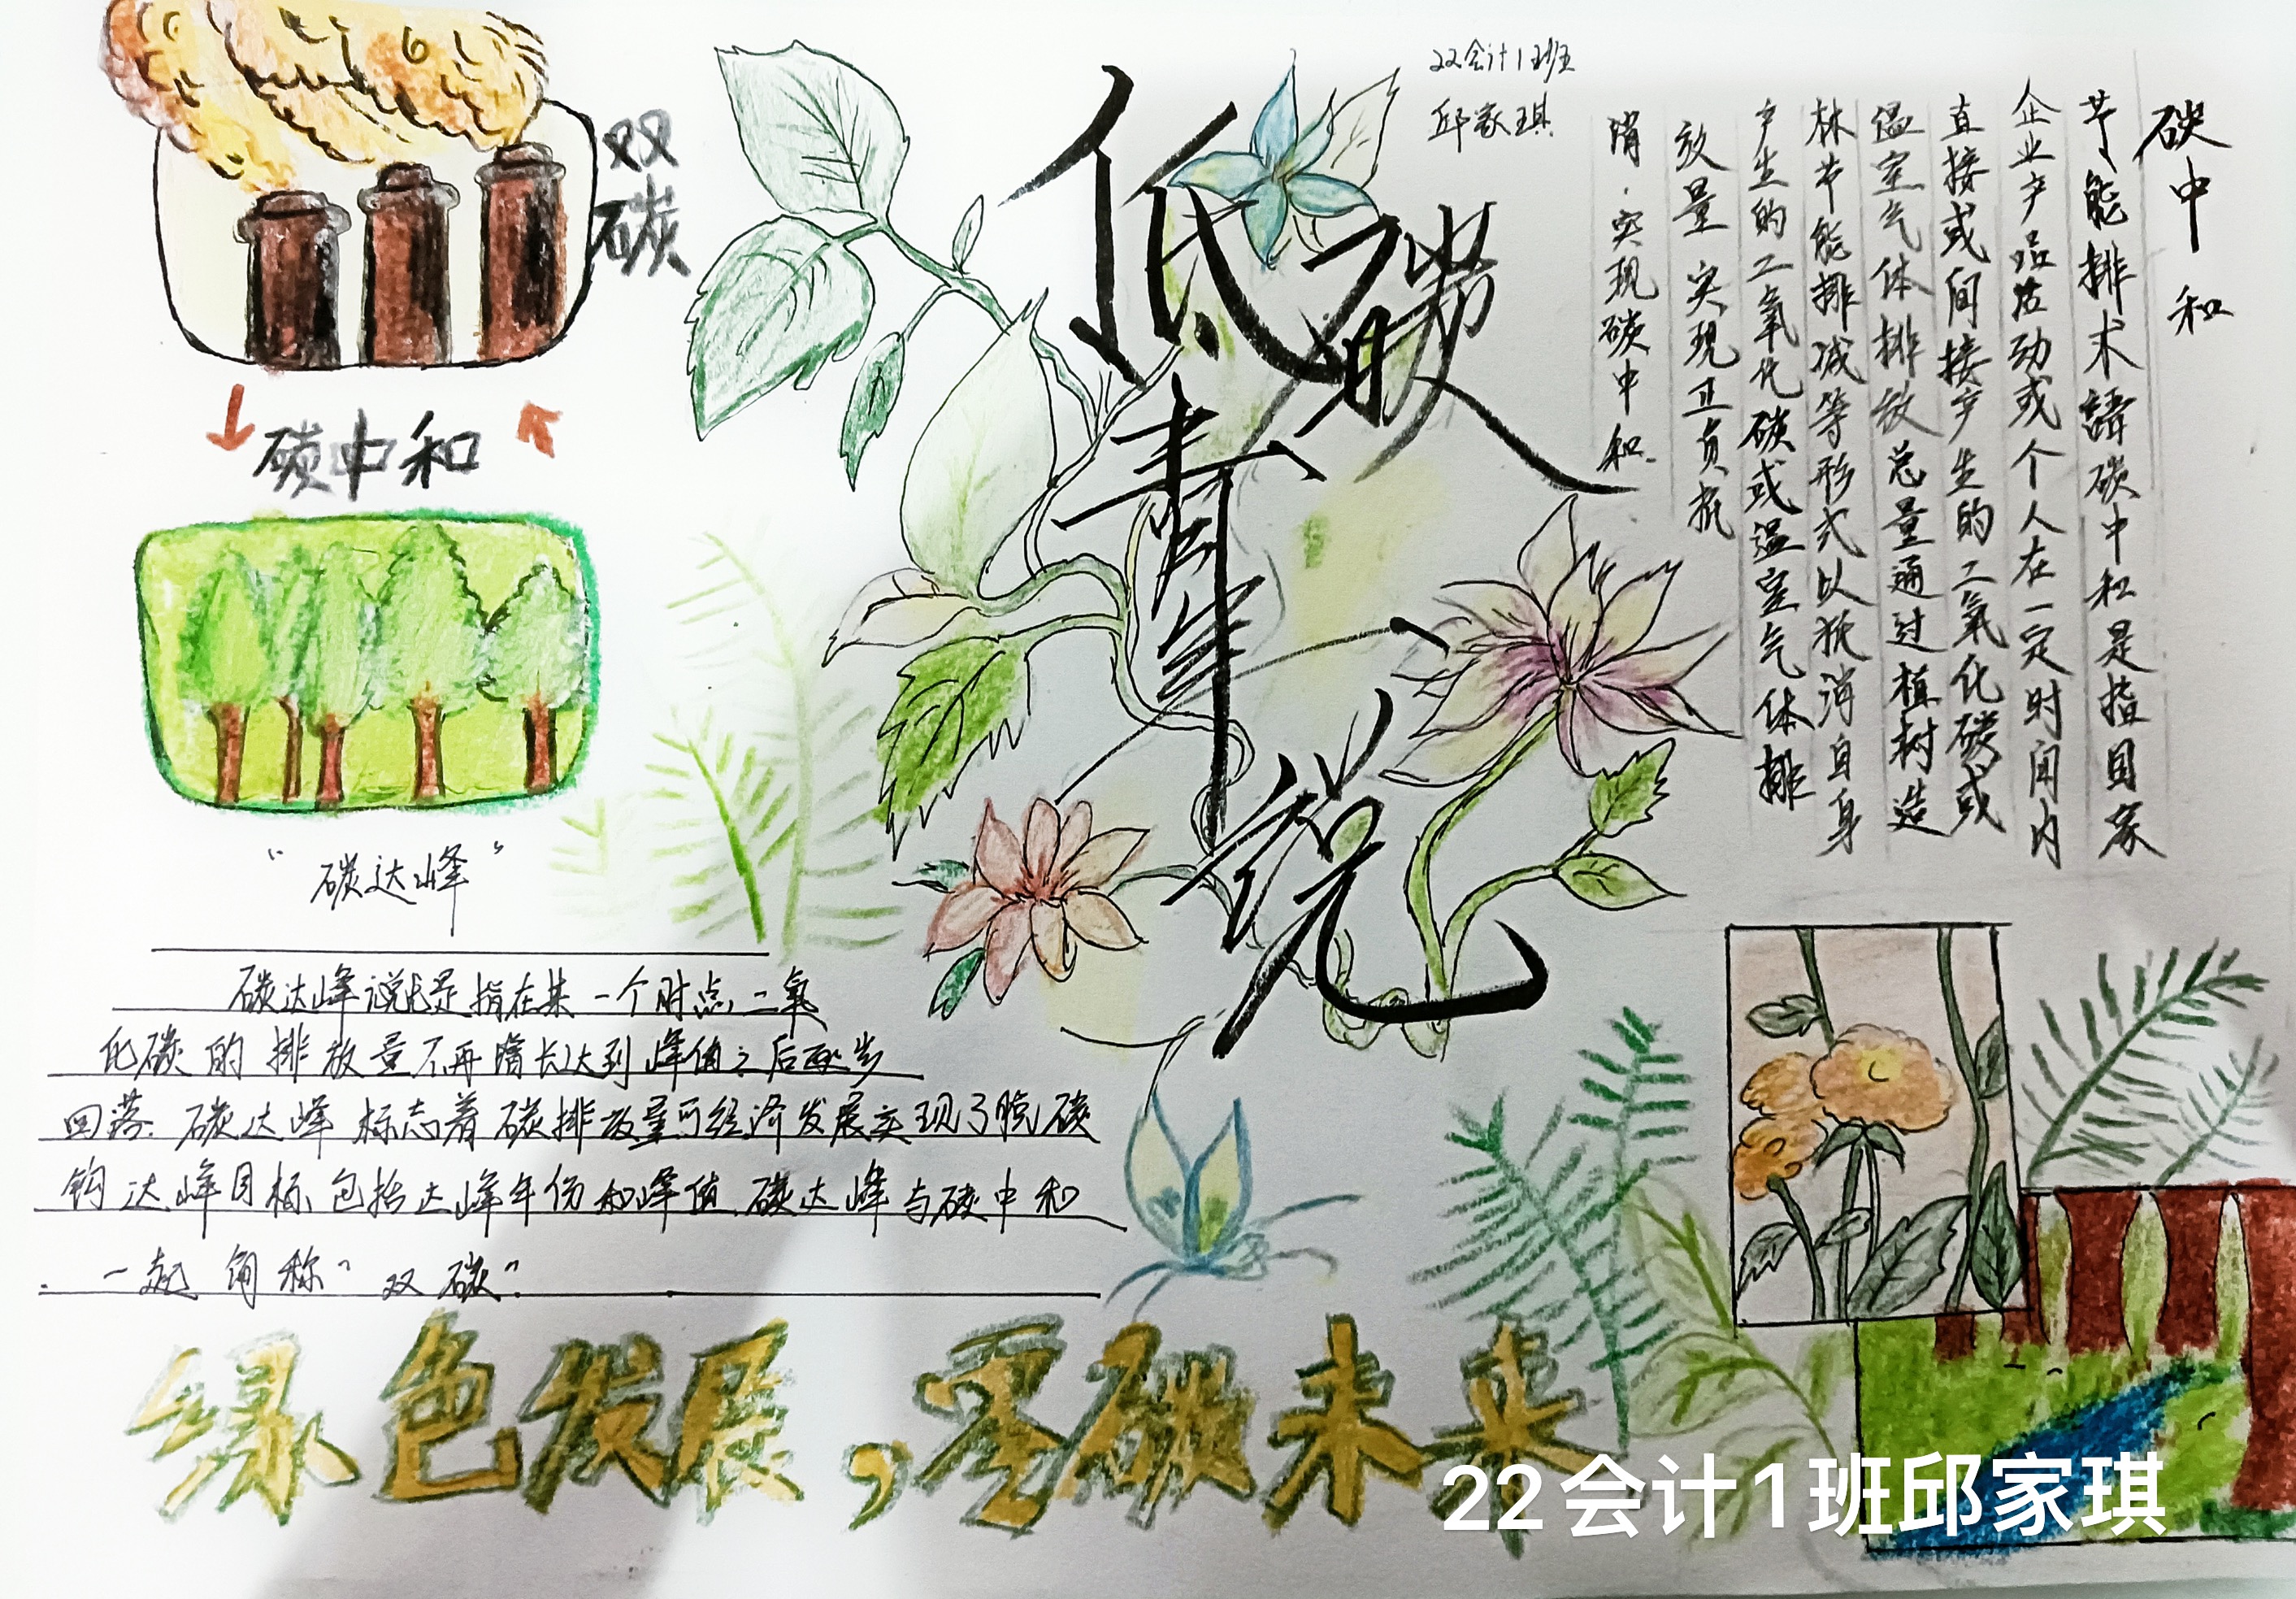 双碳
碳中和
“碳达峰”
碳达峰说是指在某一个时点二氧
化碳的排放量不再增长达到峰值之后逐步
回落.碳达峰标志着碳排放量与经济发展实现了脱碳
钩达峰目标包括达峰年份和峰值.碳达峰与碳中和
一起简称“双碳”
低碳青年说
22会计1班
邱家琪
碳中和
节能排术語碳中和是指国家
企业产品活动或个人在一定时间内
直接或间接产生的二氧化碳或
温室气体排放总量通过植树造
林节能排减等形式以抵消自身
产生的二氧化碳或温室气体排
放量 实现正负抵
消.实现碳中和.
绿色发展,零碳未来
22会计1班邱家琪